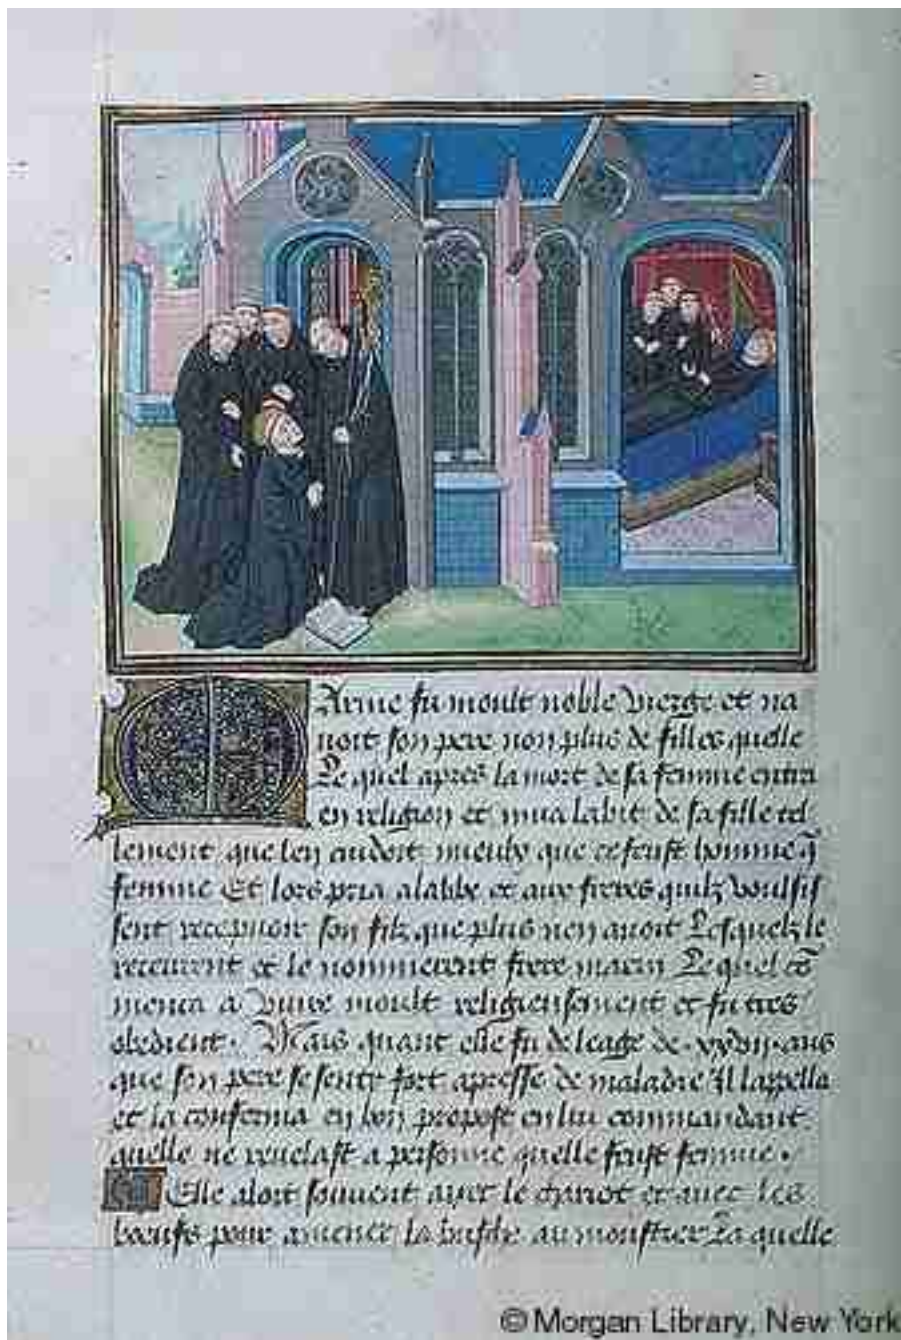 Arine fu moult noble vierge et na
uoit son pere non plus de filles quelle
Le quel apres la mort de sa femme entra
en religion et mua labit de sa fille tel
lement que len cudoit mieulx que ce feust homme q̃
femme Et lors pria alabbe et aux freres quilz voulsis
sent recepuoir son filz que plus nen auoit Lesquelz le
receurent et le nommerent frere marin Le quel cõ
menca a viure moult religieusement et fu tres
obedient. Mais quant elle fu de leage de .xxvij. ans
que son pere se senty fort apresse de maladie Il lappella
et la conferma en bon propost en lui commandant
quelle ne reuelast a personne quelle feust femme.
Elle aloit souuent auec le chariot et auec les
boeufs pour amener la busche au moustier La quelle
© Morgan Library, New York